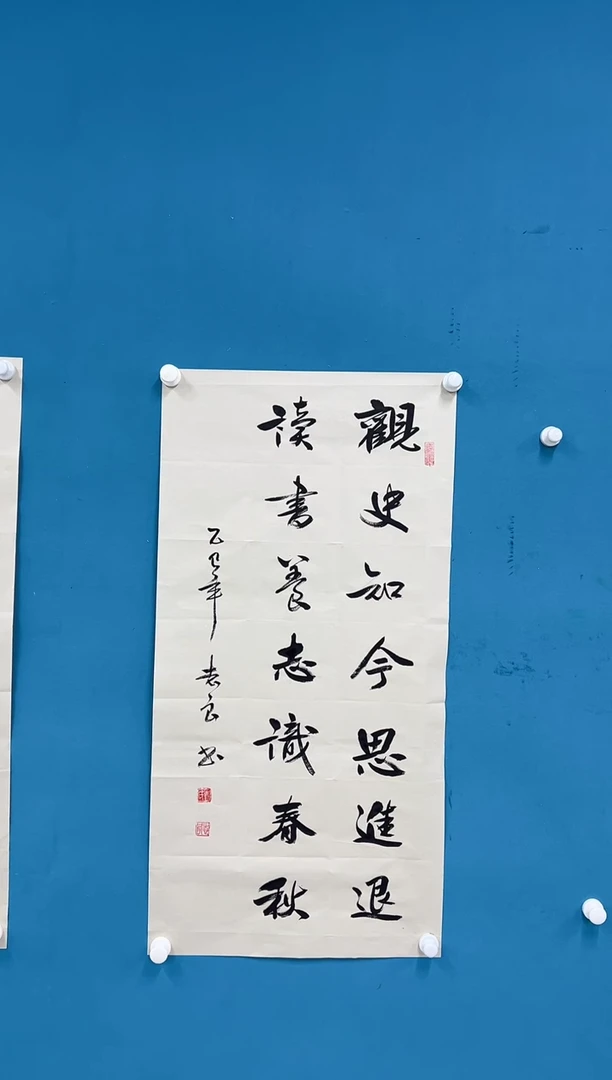 觀史知今思進退
读書养志識春秋
乙巳年 志良书